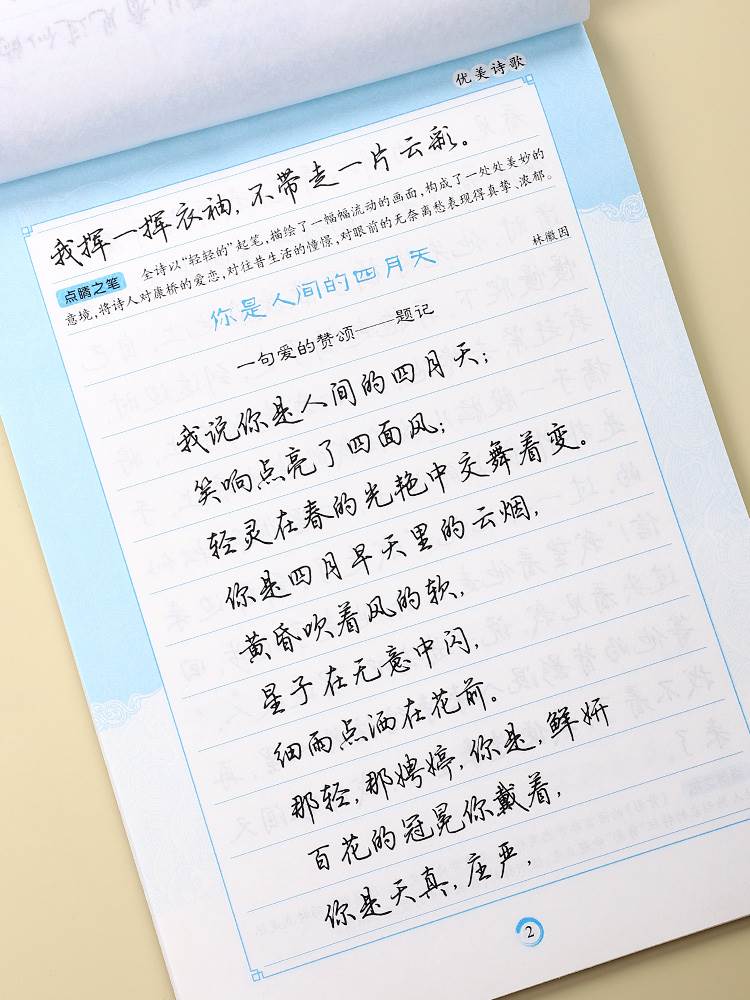 优美诗歌
我挥一挥衣袖,不带走一片云彩。
点睛之笔 全诗以“轻轻的”起笔,描绘了一幅幅流动的画面,构成了一处处美妙的
意境,将诗人对康桥的爱恋,对往昔生活的憧憬,对眼前的无奈离愁表现得真挚、浓郁。
你是人间的四月天
林徽因
一句爱的赞颂——题记
我说你是人间的四月天;
笑响点亮了四面风;
轻灵在春的光艳中交舞着变。
你是四月早天里的云烟,
黄昏吹着风的软,
星子在无意中闪,
细雨点洒在花前。
那轻,那娉婷,你是,鲜妍
百花的冠冕你戴着,
你是天真,庄严,
2